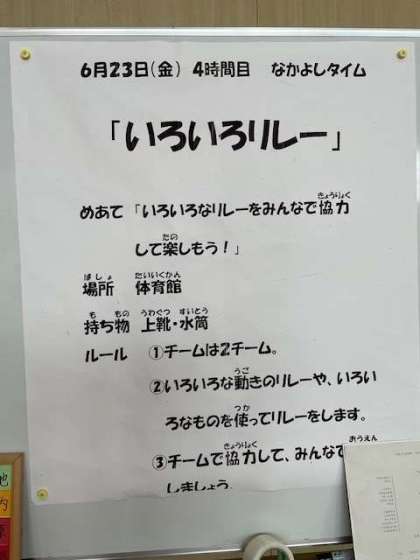 6月23日(金) 4時間目 なかよしタイム
「いろいろリレー」
めあて 「いろいろなリレーをみんなで協力
して楽しもう！」
場所 体育館
持ち物 上靴・水筒
ルール ①チームは2チーム。
②いろいろな動きのリレーや、いろい
ろなものを使ってリレーをします。
③チームで協力して、みんなで
しましょう。